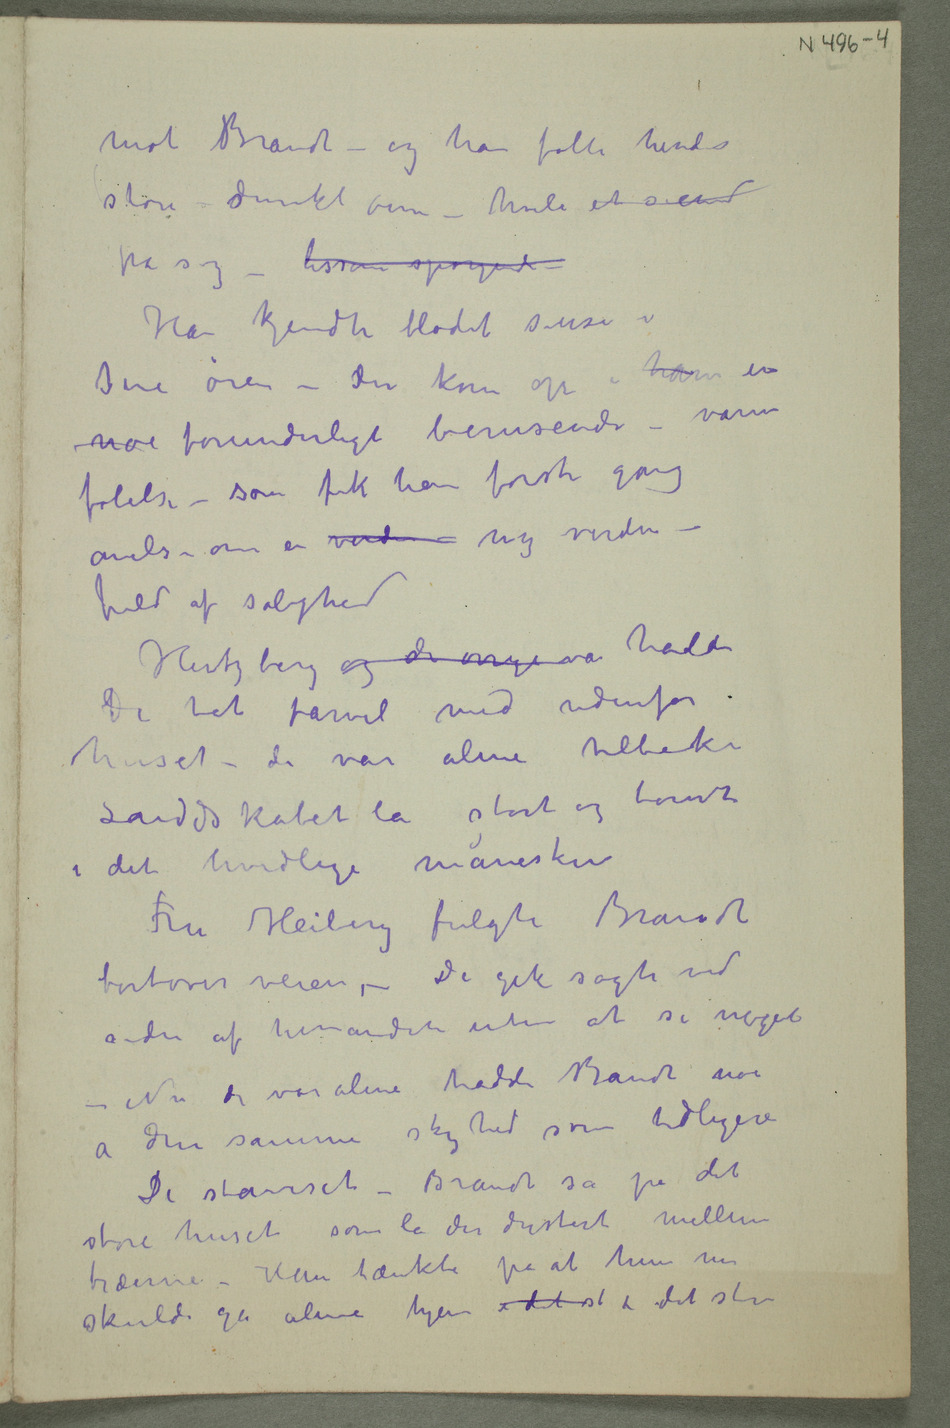 N 496-4
mot Brandt – og han følte hendes
store – dunkle øine – hvile et secund
på sig – lissom spørgende –
Han kjendte blodet suse i
sine ören – der kom op i ham en
noe forunderligt berusende – varm
følelse – som fik han første gang
anelse om en verden – ny verden –
fuld af salighed
Hertzberg og de øvrige va hadde
De tat farvel med udenfor
huset – de var alene tilbake
Landskabet lå stort og tomt
i det hvidlige måneskin
Fru Heiberg fulgte Brandt
bortover veien, – De gik sagte ved
siden af hverandre uten at si noget
– Nu de var alene hadde Brandt noe
a den samme skyhed som tidligere
De stanset – Brandt så på det
store huset som lå der dystert mellem
træerne – Han tænkte på at hun nu
skulde gå alene hjem i det st i det store